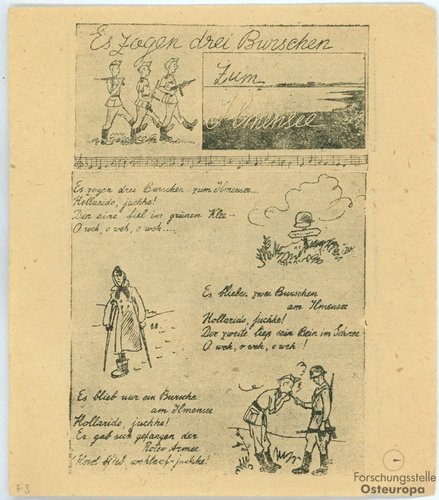 Es zogen drei Burschen
Zum
Ilmensee
Es zogen drei Burschen zum Ilmensee...
Hollarido, juchhe!
Der eine fiel im grünen Klee..
O weh, o weh, o weh....
Es blieben zwei Burschen
am Ilmensee
Hollarido, juchhe!
Der zweite liess sein Bein im Schnee
O weh, o weh, o weh!
Es blieb nur ein Bursche
am Ilmensee
Hollarido, juchhe!
Er gab sich gefangen der
Roten Armee
Und blieb wohlauf-juchhe!
F3
Forschungsstelle
Osteuropa